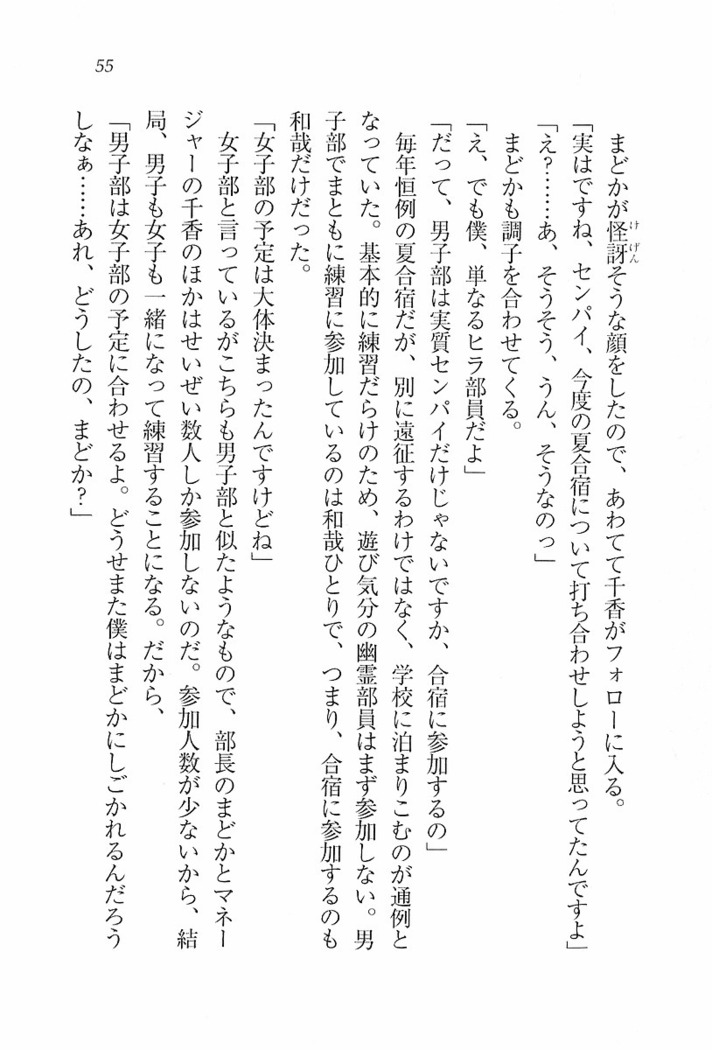 55
まどかが怪訝そうな顔をしたので、あわてて千香がフォローに入る。
けげん
「実はですね、センパイ、今度の夏合宿について打ち合わせしようと思ってたんですよ」
「え？……あ、そうそう、うん、そうなのっ」
まどかも調子を合わせてくる。
「え、でも僕、単なるヒラ部員だよ」
「だって、男子部は実質センパイだけじゃないですか、合宿に参加するの」
毎年恒例の夏合宿だが、別に遠征するわけではなく、学校に泊まりこむのが通例と
なっていた。基本的に練習だらけのため、遊び気分の幽霊部員はまず参加しない。男
子部でまともに練習に参加しているのは和哉ひとりで、つまり、合宿に参加するのも
和哉だけだった。
「女子部の予定は大体決まったんですけどね」
女子部と言っているがこちらも男子部と似たようなもので、部長のまどかとマネー
ジャーの千香のほかはせいぜい数人しか参加しないのだ。参加人数が少ないから、結
局、男子も女子も一緒になって練習することになる。だから、
「男子部は女子部の予定に合わせるよ。どうせまた僕はまどかにしごかれるんだろう
しなぁ……あれ、どうしたの、まどか？」